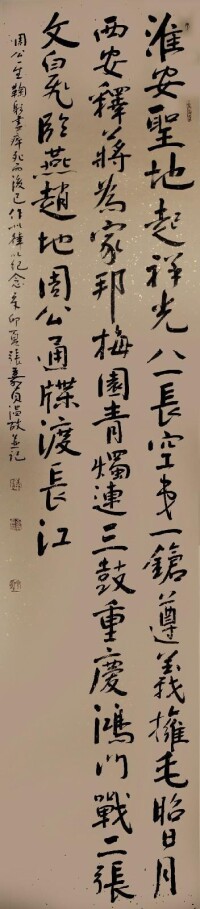 淮安聖地起祥光八一長空第一鎗遵義擁毛昭日月
西安釋蔣為家邦梅園青燭連三鼓重慶鴻門戰二張
文白飛臨燕趙地周公通牒渡長江
周公一生鞠躬盡瘁死而後已作以律以紀念辛卯夏張嘉貞溫故並記